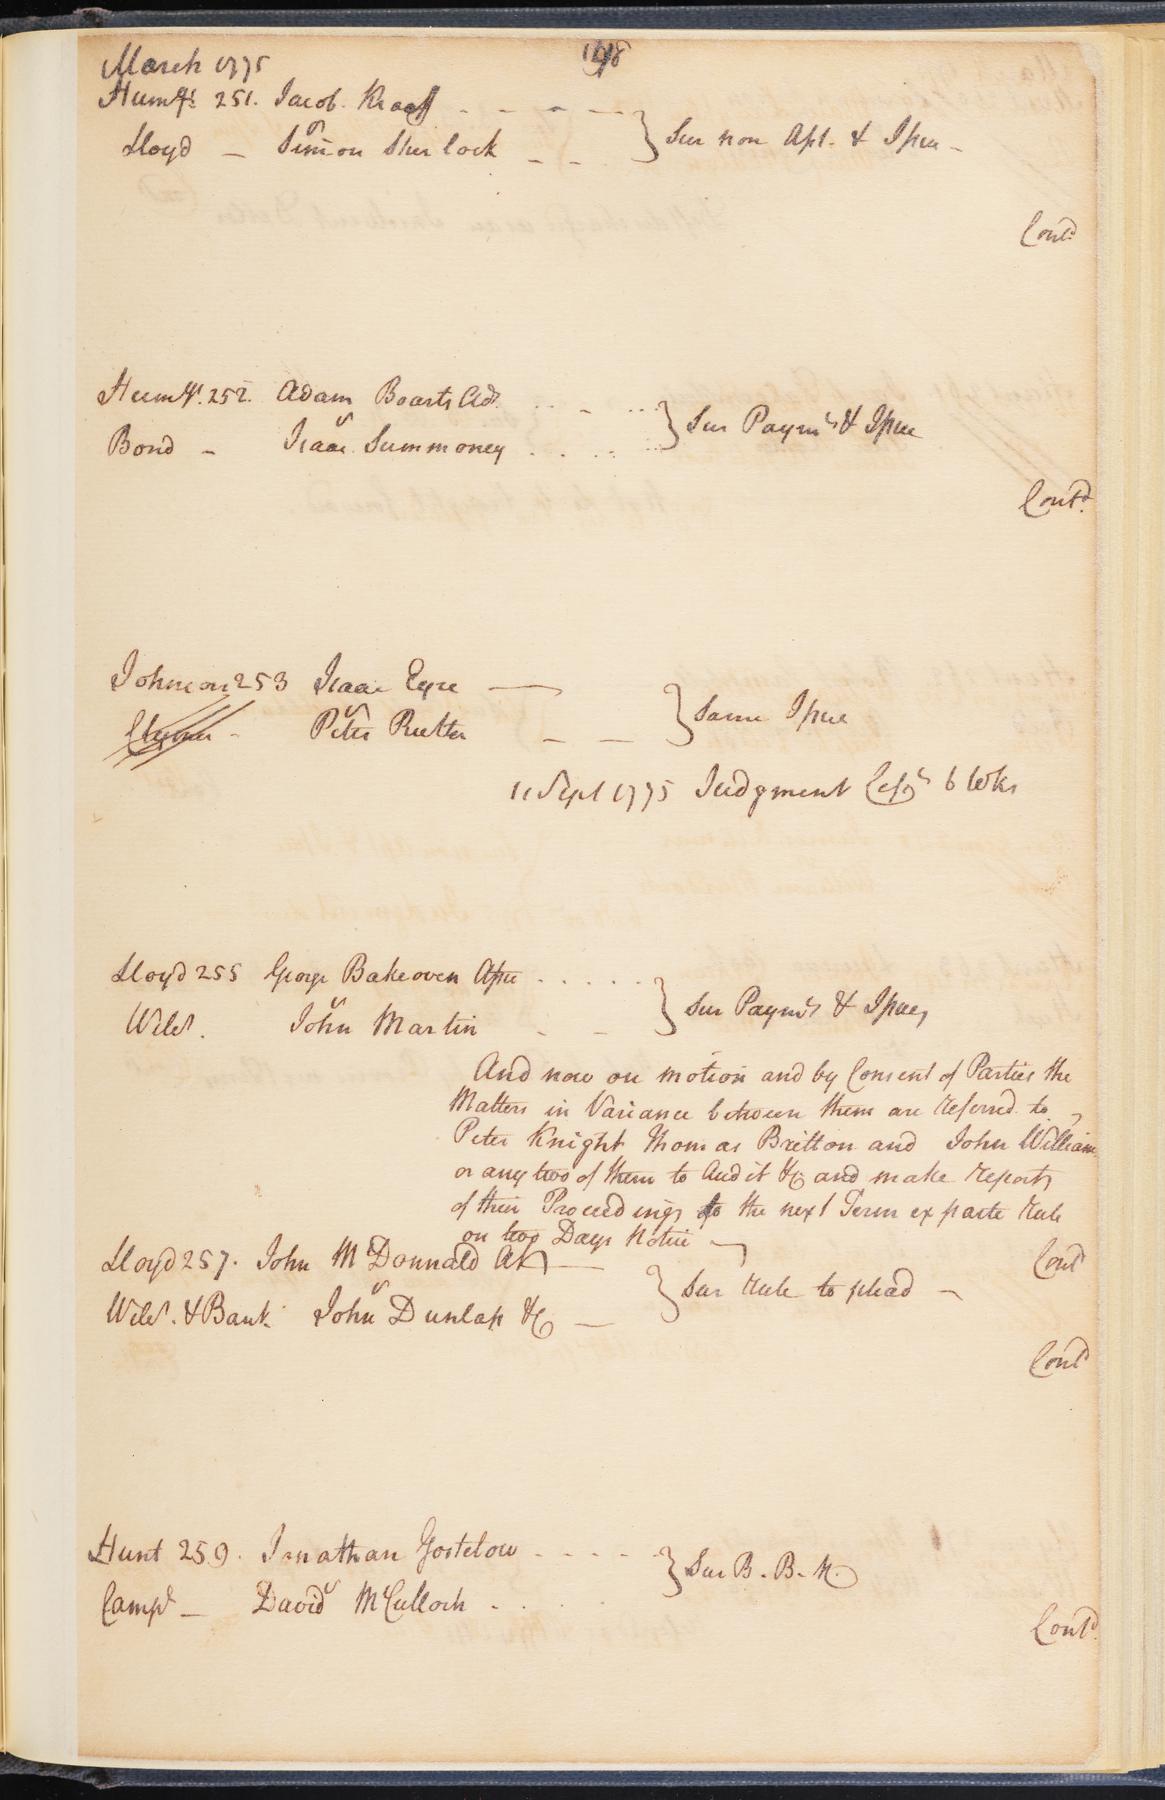 March 1775
Humps. 251. Jacob. Kraff
v
Lloyd - Simon Sherlock - - } Sur non Apt. & Issue -
Contd
Humps. 252. Adam Boarts Adr.
v
Bond - Isaac Summoney } Sur Paymt & Issue
Contd.
Johnson 253 Isaac Eyre
v
Clymer - Peter Rutter } Same Issue
11 Sept 1775 Judgment Cesst 6 Wks
Lloyd 255 George Bakeoven Assee
v
Wilcs. John Martin } Sur Paymt & Issue,
And now on motion and by Consent of Parties the
Matters in Variance between them are referred to
Peter Knight Thomas Britton and John William
or any two of them to Audit &c and make report
of their Proceedings to the next Term ex parte rule
on two Days Notice
Contd
Lloyd 257. John McDonnald
v
Wilcs. & Bank John Dunlap &c } Sur rule to plead -
Contd
Hunt 259. Jonathan Gostelow
v
Campl - David McCulloch } Sur B. B. R.
Contd.